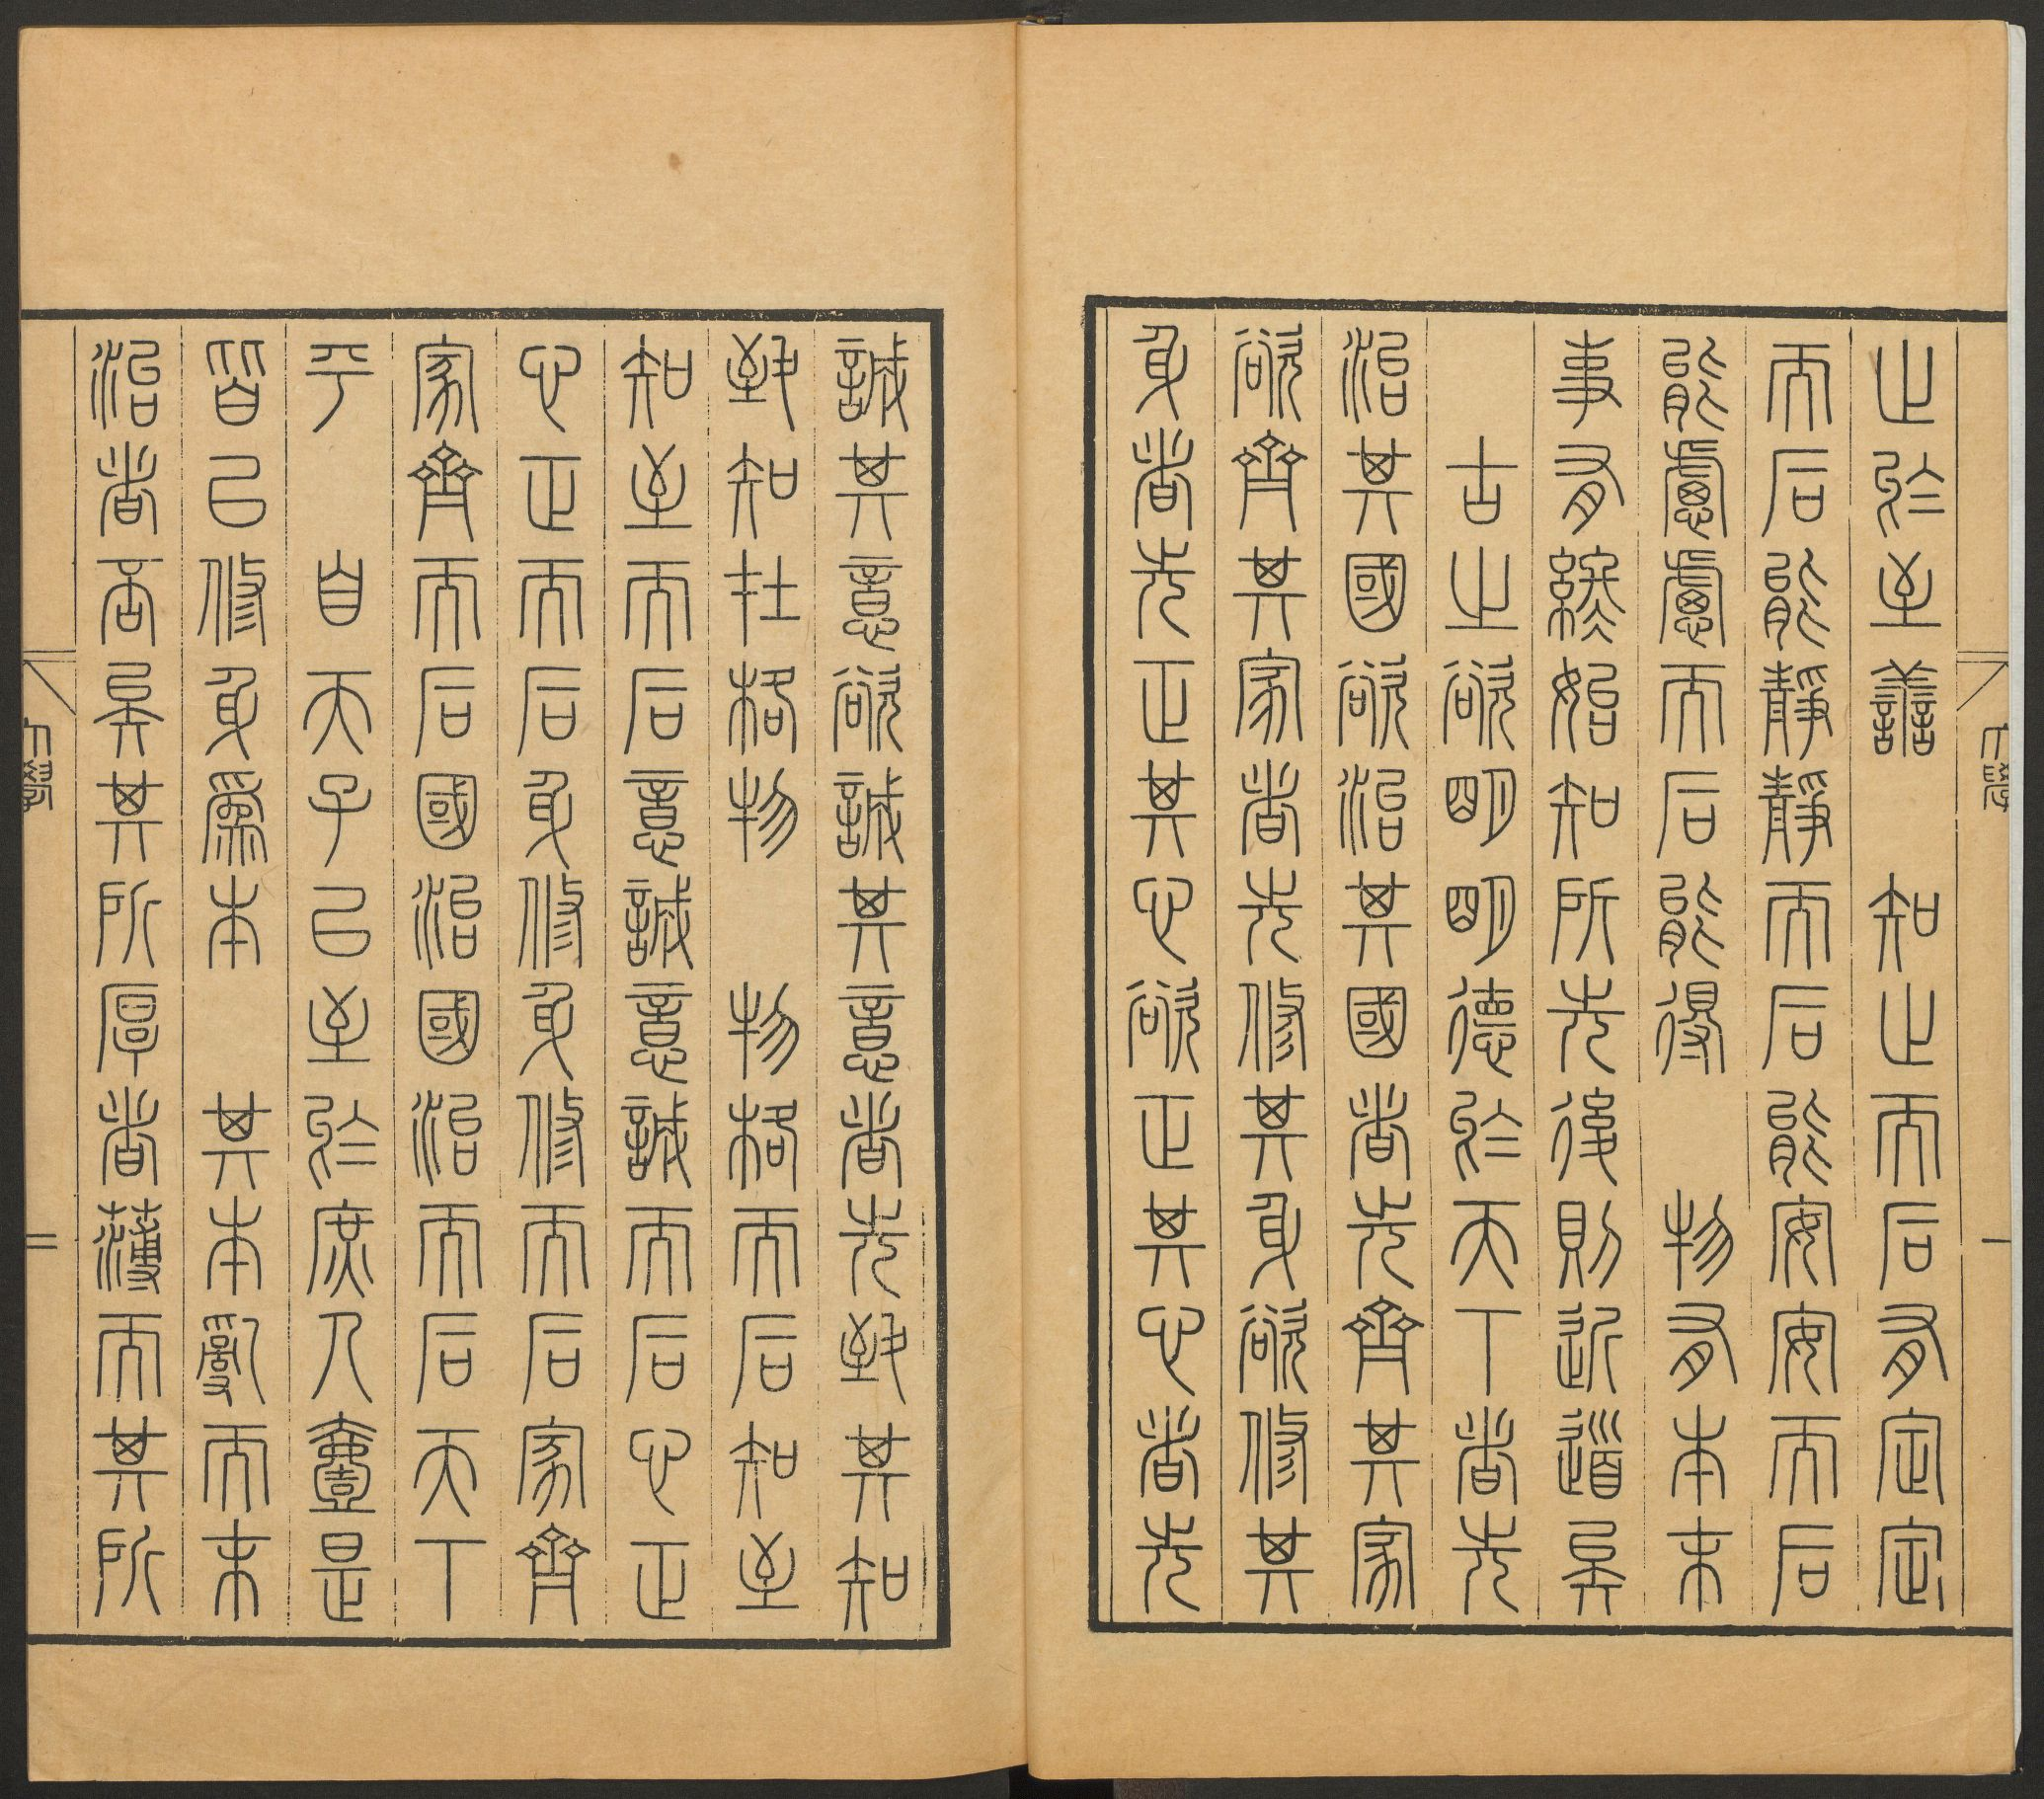 大學
一
止於至譱 知止而后有定定
而后能靜靜而后能安安而后
能慮慮而后能得 物有本末
事有終始知所先後則近道矣
古之欲明明德於天下者先
治其國欲治其國者先齊其家
欲齊其家者先修其身欲修其
身者先正其心欲正其心者先
誠其意欲誠其意者先致其知
致知在格物 物格而后知至
知至而后意誠意誠而后心正
心正而后身修身修而后家齊
家齊而后國治國治而后天下
平 自天子以至於庶人壹是
皆以修身為本 其本亂而末
治者否矣其所厚者薄而其所
大學
二